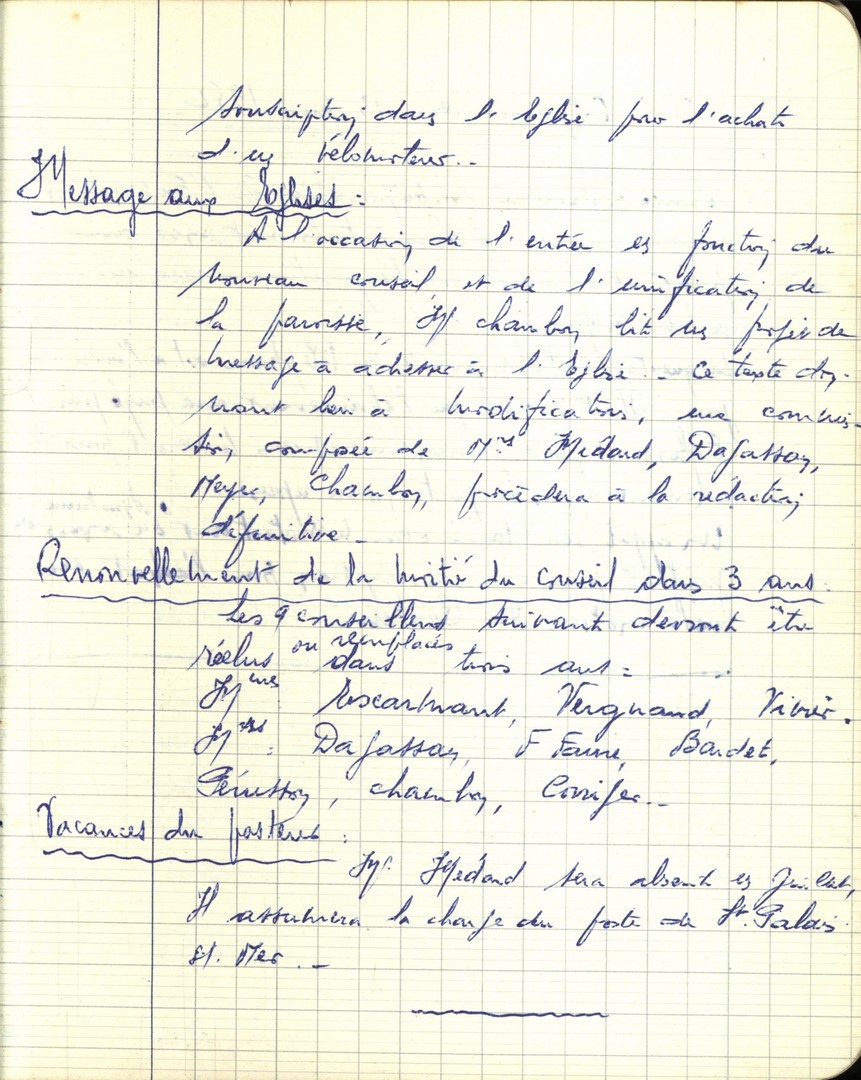 souscription dans l'Eglise pour l'achat
d'un vélomoteur..
Message aux Eglises :
A l'occasion de l'entrée en fonction du
nouveau conseil, et de l'unification de
la paroisse, M chambon lit un projet de
message à adresser à l'Eglise _ Ce texte don-
nant lieu à modifications, une commis-
sion, composée de Mrs Médard, Dagassan,
Meyer, Chambon, procèdera à la rédaction
définitive _
Renouvellement de la moitié du conseil dans 3 ans.
Les 9 conseillers suivant devront être
réelus ou remplacés dans trois ans :
Mmes : Escarmant, Vergnaud, Vivier.
Mrs : Dagassan, F Faure, Bardet,
Génusson, chambon, Conifer._
Vacances du pasteur :
Mr. Médard sera absent en Juillet,
Il assumera la charge du poste de St. Palais
s/. Mer . _